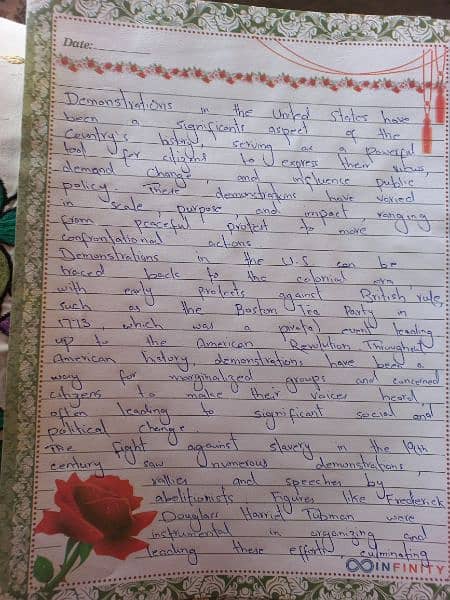 Date:
Demonstrations in the United States have
been a significants aspect of the
Country's history, serving as a powerful
tool for citizens to express their views,
demand change, and influence public
policy. These demonstrations have varied
in scale, purpose, and impact, ranging
from peaceful protest to more
confrontational actions
Demonstrations in the U.S can be
traced back to the colonial era,
with early protests against British rule,
such as the Boston Tea Party in
1773, which was a pivotal event leading
up to the American Revolution Throughout
American history, demonstrations have been a
way for marginalized groups and concerned
citizens to make their voices heard,
often leading to significant social and
political change.
The fight against slavery in the 19th
century saw numerous demonstrations,
rallies and speeches by
abolitionists Figures like Frederick
Douglass Harriet Tubman were
instrumental in organizing and
leading these efforts, culminating
INFINITY